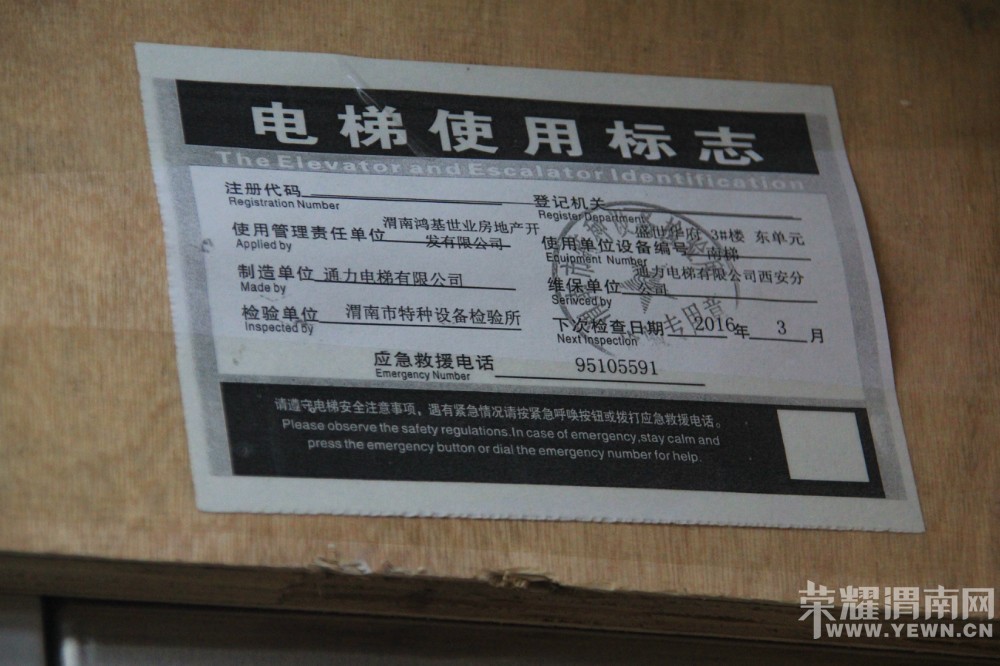 电梯使用标志
The Elevator and Escalator Identification
注册代码
Registration Number
登记机关
Register Department
使用管理责任单位 渭南鸿基世业房地产开
发有限公司
Applied by
盛世华府 3#楼 东单元
使用单位设备编号 南梯
Equipment Number
制造单位 通力电梯有限公司
Made by
通力电梯有限公司西安分
维保单位 公司
Serivced by
检验单位 渭南市特种设备检验所
Inspected by
下次检查日期 2016年 3 月
Next Inspection
应急救援电话 95105591
Emergency Number
请遵守电梯安全注意事项。遇有紧急情况请按紧急呼唤按钮或拨打应急救援电话。
Please observe the safety regulations.In case of emergency,stay calm and
press the emergency button or dial the emergency number for help.
荣耀渭南网
WWW.YEWN.CN